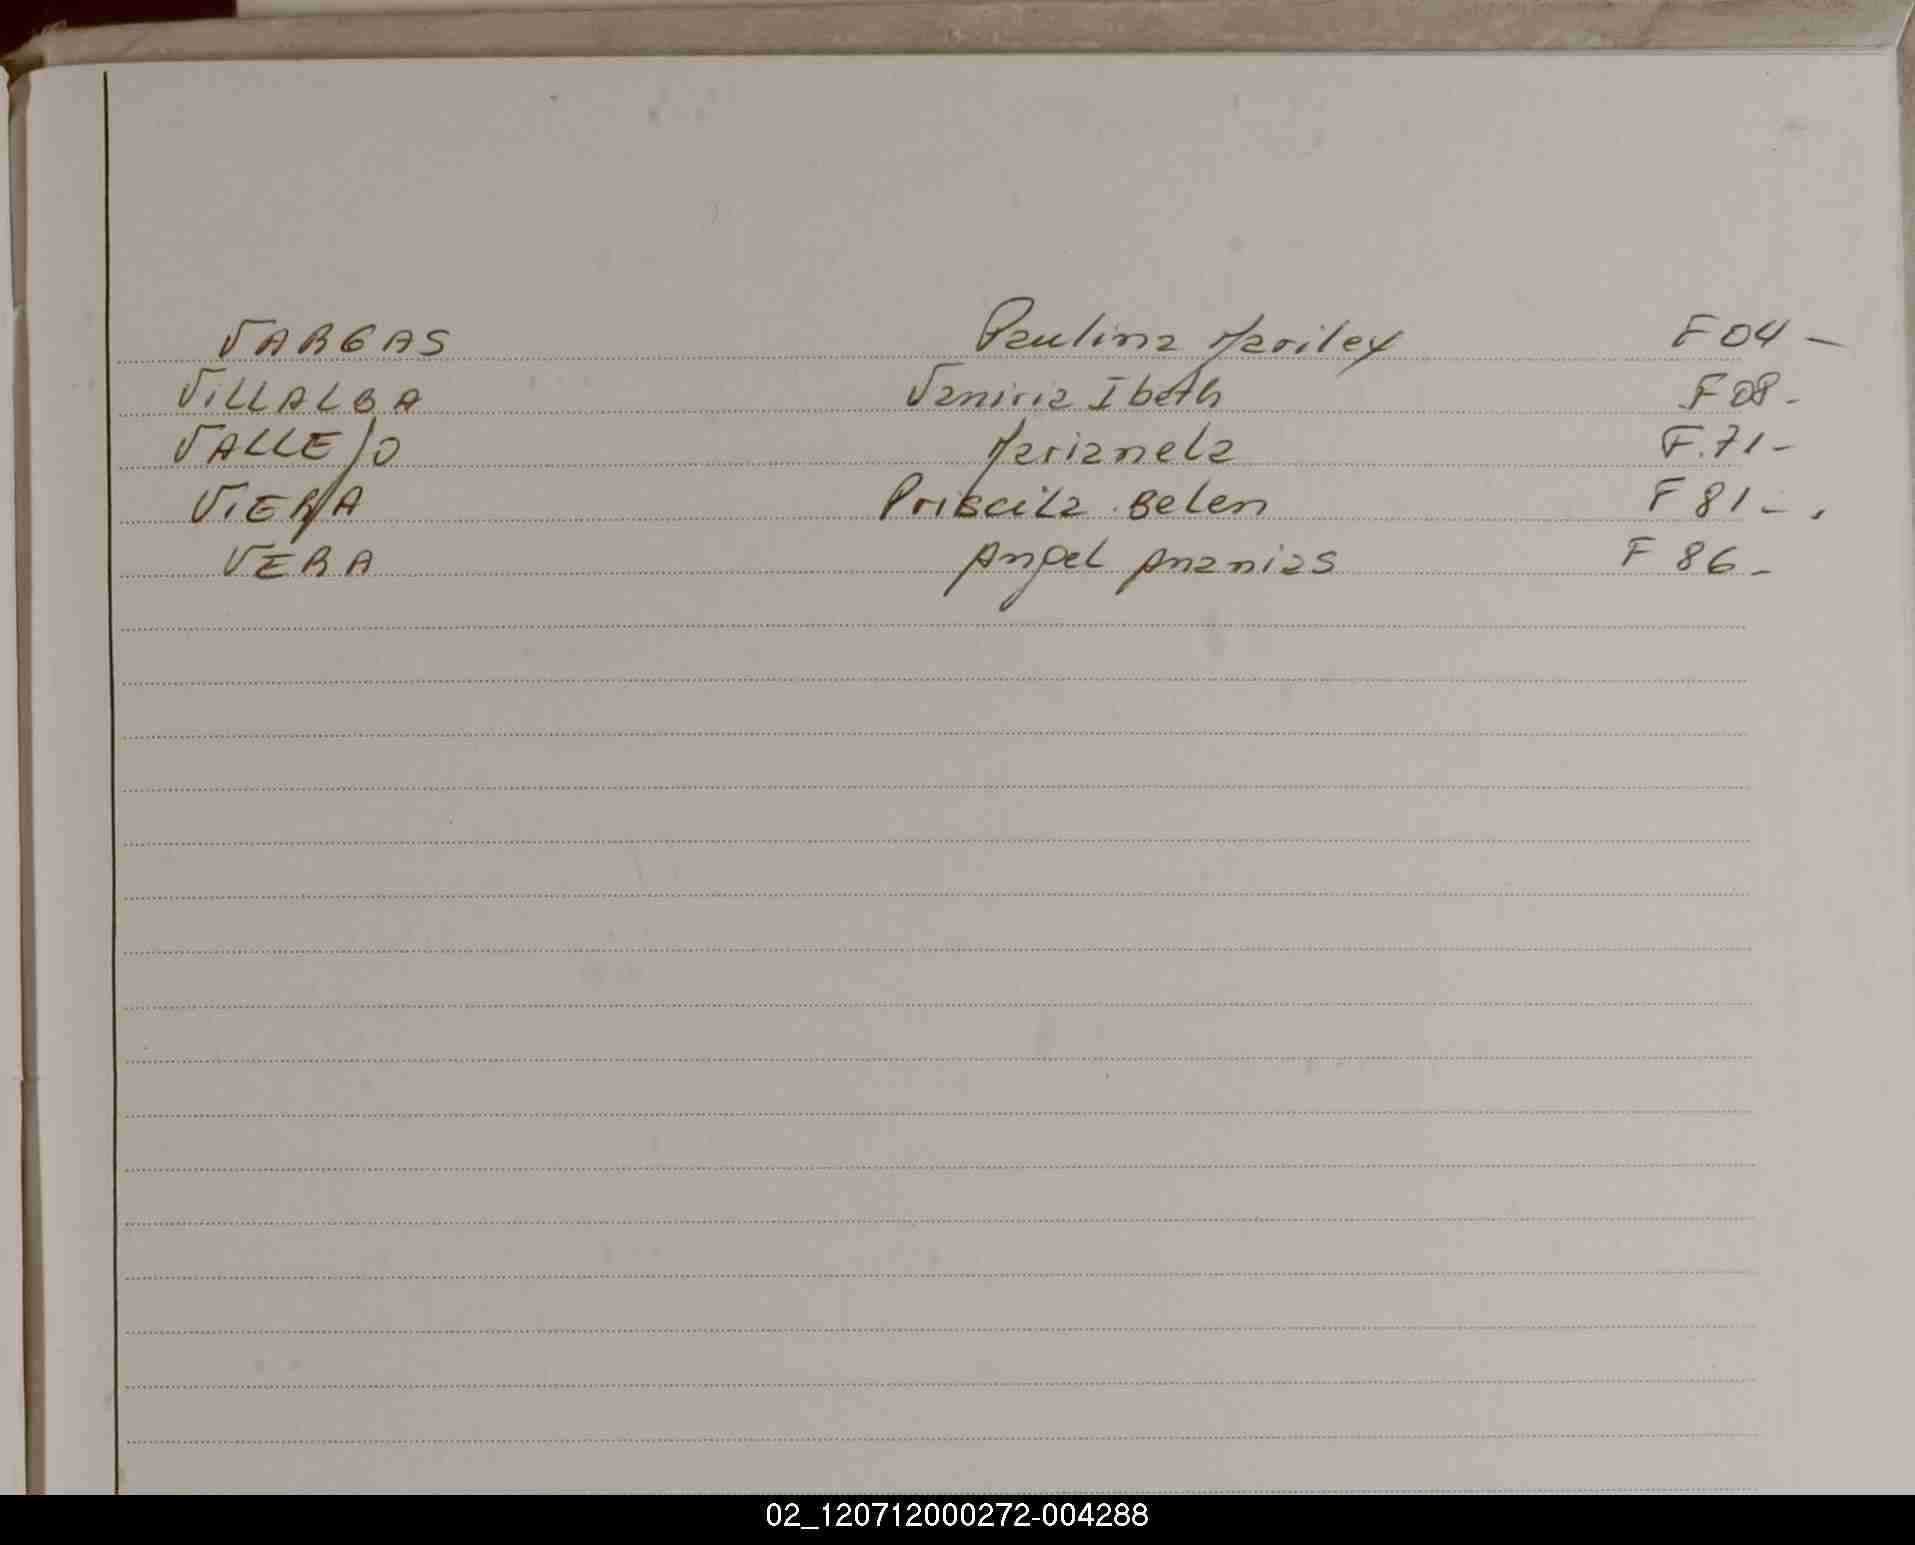 VARGAS Paulina Mariley F 04 -
ViLLALBA Vaniria Ibeth F 08 -
VALLEJO Marianela F. 71 -
ViERA Priscila Belen F 81 - .
VERA Angel Ananias F 86 -
02_120712000272-004288